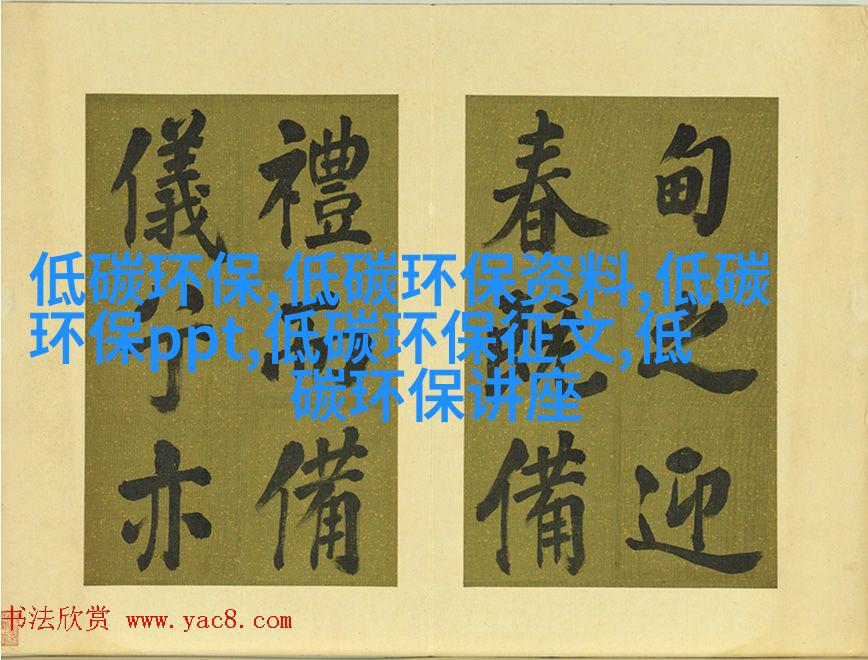 甸之迎
春備
禮備
儀亦
低碳环保,低碳环保资料,低碳
环保ppt,低碳环保征文,低
碳环保讲座
书法欣赏 www.yac8.com